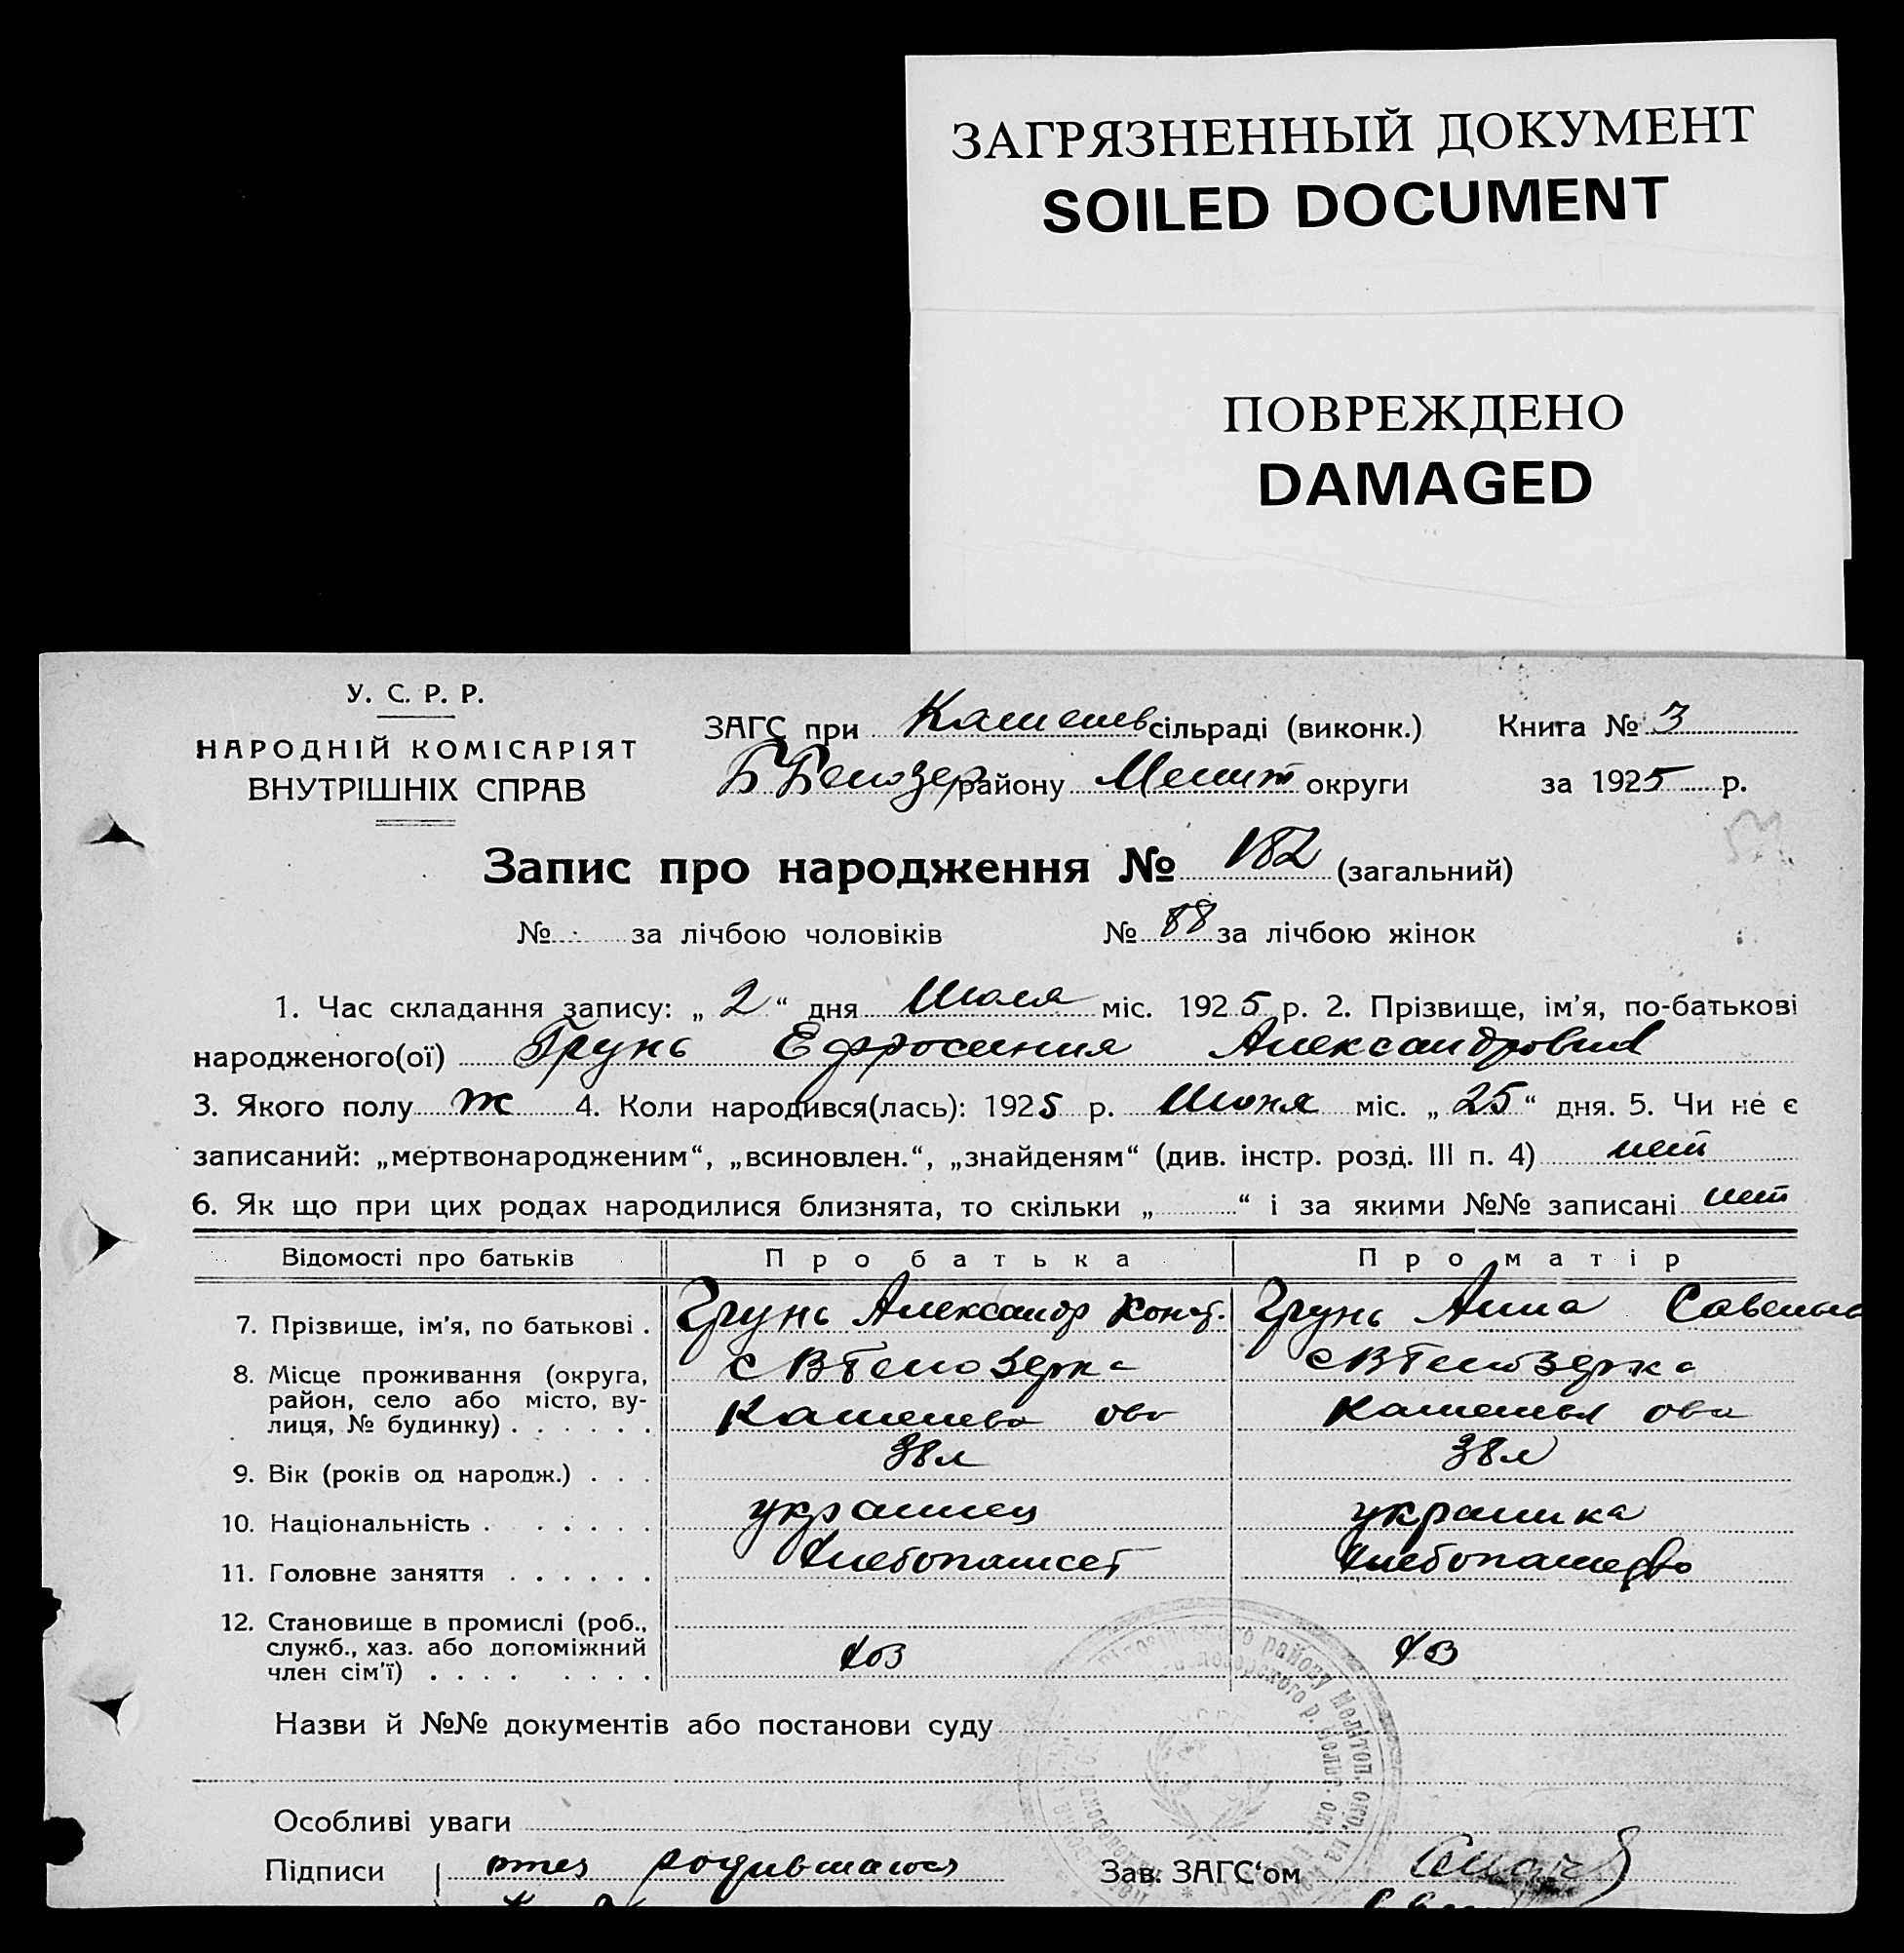 ЗАГРЯЗНЕННЫЙ ДОКУМЕНТ
SOILED DOCUMENT
ПОВРЕЖДЕНО
DAMAGED
У. С. Р. Р.
НАРОДНІЙ КОМІСАРІЯТ
ВНУТРІШНІХ СПРАВ
ЗАГС при сільраді (виконк.)
Б Белозер району Мелит округи
Книга № 3
за 1925 р.
Запис про народження № 182 (загальний)
№ за лічбою чоловіків № 88 за лічбою жінок
1. Час складання запису: „ 2 “ дня Июля міс. 1925 р. 2. Прізвище, ім'я, по-батькові
народженого(ої) Грунь Ефросиния Александровна
3. Якого полу ж 4. Коли народився(лась): 1925 р. Июня міс. „ 25 “ дня. 5. Чи не є
записаний: „мертвонародженим“, „всиновлен.“, „знайденям“ (див. інстр. розд. III п. 4) нет
6. Як що при цих родах народилися близнята, то скільки „ “ і за якими №№ записані нет
Відомості про батьків Про батька Про матір
7. Прізвище, ім'я, по батькові . Грунь Александр Конст. Грунь Анна Савельев
8. Місце проживання (округа,
район, село або місто, ву-
лиця, № будинку) . . . . . .
с В Белозерка с В Белозерка
9. Вік (років од народж.) . . . 38 л 38 л
10. Національність . . . . . . украинец украинка
11. Головне заняття . . . . . . Хлебопашест Хлебопашество
12. Становище в промислі (роб.,
служб., хаз. або допоміжний
член сім'ї) . . . . . . . .
хоз хоз
Назви й №№ документів або постанови суду
Особливі уваги
Підписи отец родившагося Зав. ЗАГС'ом